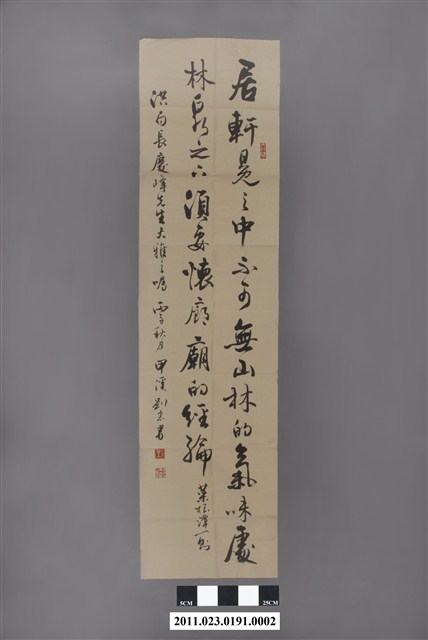 居軒冕之中不可無山林的氣味處
林泉之下須要懷廊廟的經綸 菜根譚一則
洪局長慶峰先生大雅之囑 丙子秋月 甲溪 劉書
5CM 25CM
2011.023.0191.0002